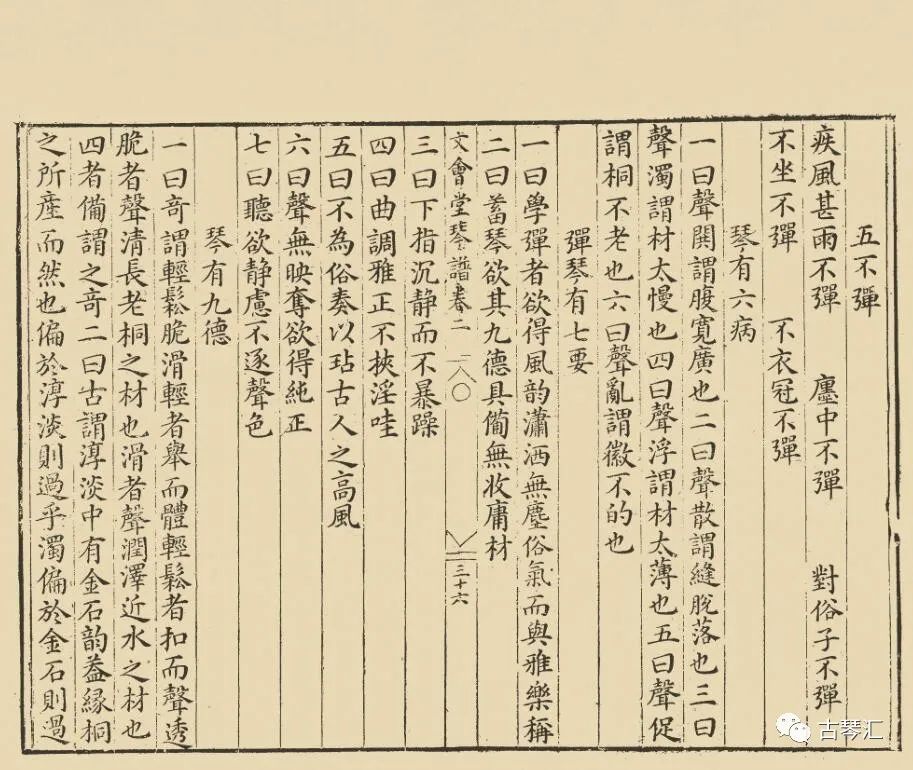 五不彈
疾風甚雨不彈　廛中不彈　對俗子不彈
不坐不彈　不衣冠不彈
琴有六病
一曰聲閧謂腹寬廣也二曰聲散謂縫脫落也三曰
聲濁謂材太慢也四曰聲浮謂材太薄也五曰聲促
謂桐不老也六曰聲亂謂徽不的也
彈琴有七要
一曰學彈者欲得風韵瀟洒無塵俗氣而與雅樂稱
二曰蓄琴欲其九德具備無收庸材
文會堂琴譜卷二　一八〇　三十六
三曰下指沉静而不暴躁
四曰曲調雅正不挾淫哇
五曰不為俗奏以玷古人之高風
六曰聲無映奪欲得純正
七曰聽欲静慮不逐聲色
琴有九德
一曰奇謂輕鬆脆滑輕者舉而體輕鬆者扣而聲透
脆者聲清長老桐之材也滑者聲潤澤近水之材也
四者備謂之奇二曰古謂淳淡中有金石韵葢緣桐
之所產而然也偏於淳淡則過乎濁偏於金石則過
古琴汇